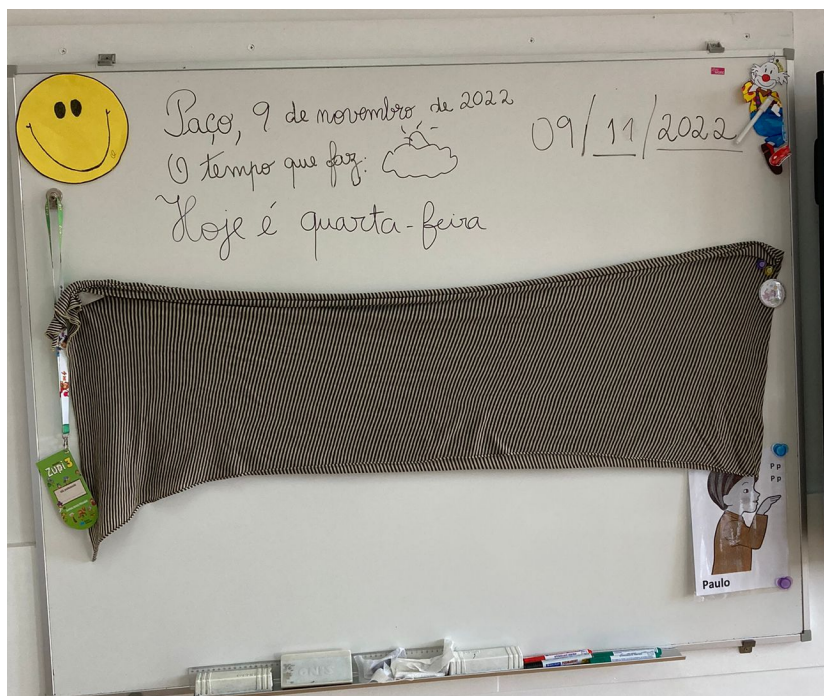 Paço, 9 de novembro de 2022
09/11/2022
O tempo que faz:
Hoje é quarta-feira
zupi 3
P p
P p
Paulo